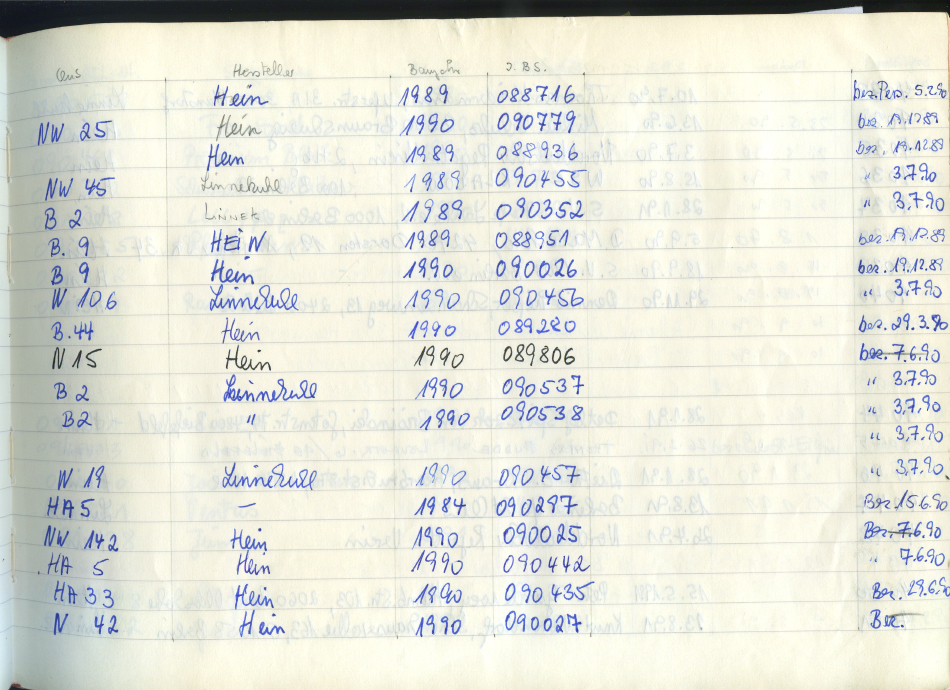 Aus Hersteller Baujahr J.BS.
Hein 1989 088716 bez. Pers. 5.2.90
NW 25 Hein 1990 090779 bez. 19.12.89
Hein 1989 088936 bez. 19.12.89
NW 45 Linnekuhl 1989 090455 " 3.7.90
B 2 LINNEK 1989 090352 " 3.7.90
B. 9 HEIN 1989 088951 bez. 19.12.89
B. 9 Hein 1990 090026 bez. 19.12.89
W 106 Linnekuhl 1990 090456 " 3.7.90
B. 44 Hein 1990 089280 bez. 29.3.90
N 15 Hein 1990 089806 bez. 7.6.90
B 2 Linnekuhl 1990 090537 " 3.7.90
B2 " 1990 090538 " 3.7.90
" 3.7.90
W 19 Linnekuhl 1990 090457 " 3.7.90
HA 5 – 1984 090297 Bez. 15.6.90
NW 142 Hein 1990 090025 Bez. 7.6.90
HA 5 Hein 1990 090442 " 7.6.90
HA 33 Hein 1890 090435 Bez. 29.6.90
N 42 Hein 1990 090027 Bez.